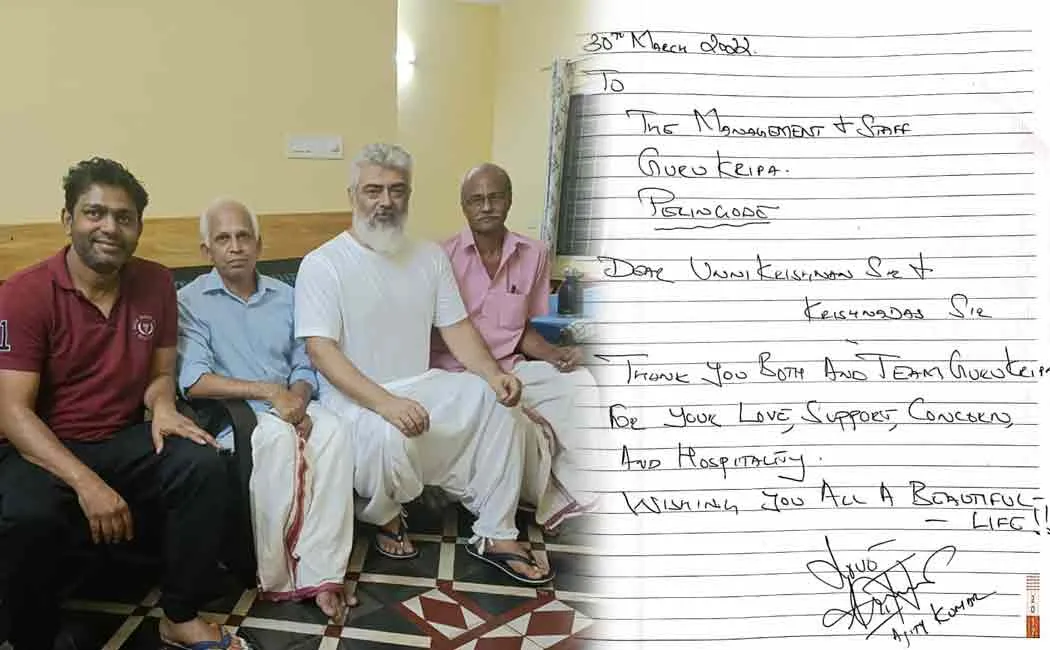 30TH MARCH 2022.
TO
THE MANAGEMENT & STAFF
GURU KRIPA.
PERINGODE
DEAR UNNIKRISHNAN SIR &
KRISHNADAS SIR
THANK YOU BOTH AND TEAM GURU KRIPA
FOR YOUR LOVE, SUPPORT, CONCERN,
AND HOSPITALITY.
WISHING YOU ALL A BEAUTIFUL-
- LIFE!!
LOVE
AJITH KUMAR
1